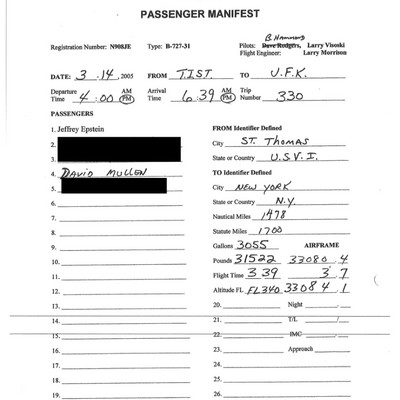 PASSENGER MANIFEST
B. Hammond
Registration Number: N908JE Type: B-727-31 Pilots: Dave Rodgers, Larry Visoski
Flight Engineer: Larry Morrison
DATE: 3 . 14 , 2005 FROM T.I.S.T. TO J.F.K.
Departure Time 4 : 00 AM PM Arrival Time 6 : 39 AM PM Trip Number 330
PASSENGERS
1. Jeffrey Epstein
2.
3.
4. DAVID MULLEN
5.
6.
7.
8.
9.
10.
11.
12.
13.
14.
15.
16.
17.
18.
19.
FROM Identifier Defined
City ST. THOMAS
State or Country U.S.V.I.
TO Identifier Defined
City NEW YORK
State or Country N.Y.
Nautical Miles 1478
Statute Miles 1700
Gallons 3055 AIRFRAME
Pounds 31522 33080 . 4
Flight Time 3 39 3 . 7
Altitude FL FL340 33084 . 1
20. Night
21. T/L /
22. IMC
23. Approach
24.
25.
26.